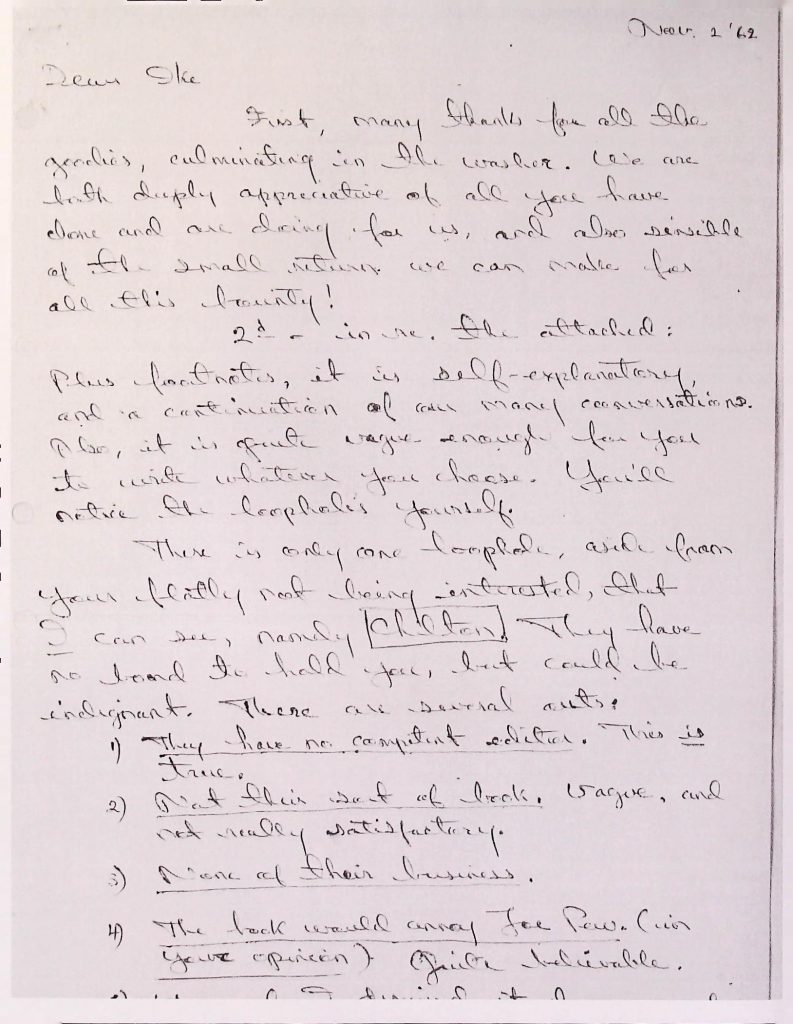 Nov. 2 '62
Dear Ike
First, many thanks for all the
goodies, culminating in the washer. We are
both deeply appreciative of all you have
done and are doing for us, and also sensible
of the small return we can make for
all this bounty!
2d - in re. the attached:
Plus footnotes, it is self-explanatory,
and a continuation of our many conversations.
Also, it is quite vague enough for you
to write whatever you choose. You'll
notice the loopholes yourself.
There is only one loophole, aside from
your flatly not being interested, that
I can see, namely Chilton. They have
no bond to hold you, but could be
indignant. There are several outs:
1) They have no competent editor. This is
true.
2) Not their sort of book. Vague, and
not really satisfactory.
3) None of their business.
4) The book would annoy Joe Pew. (in
your opinion) Quite believable.